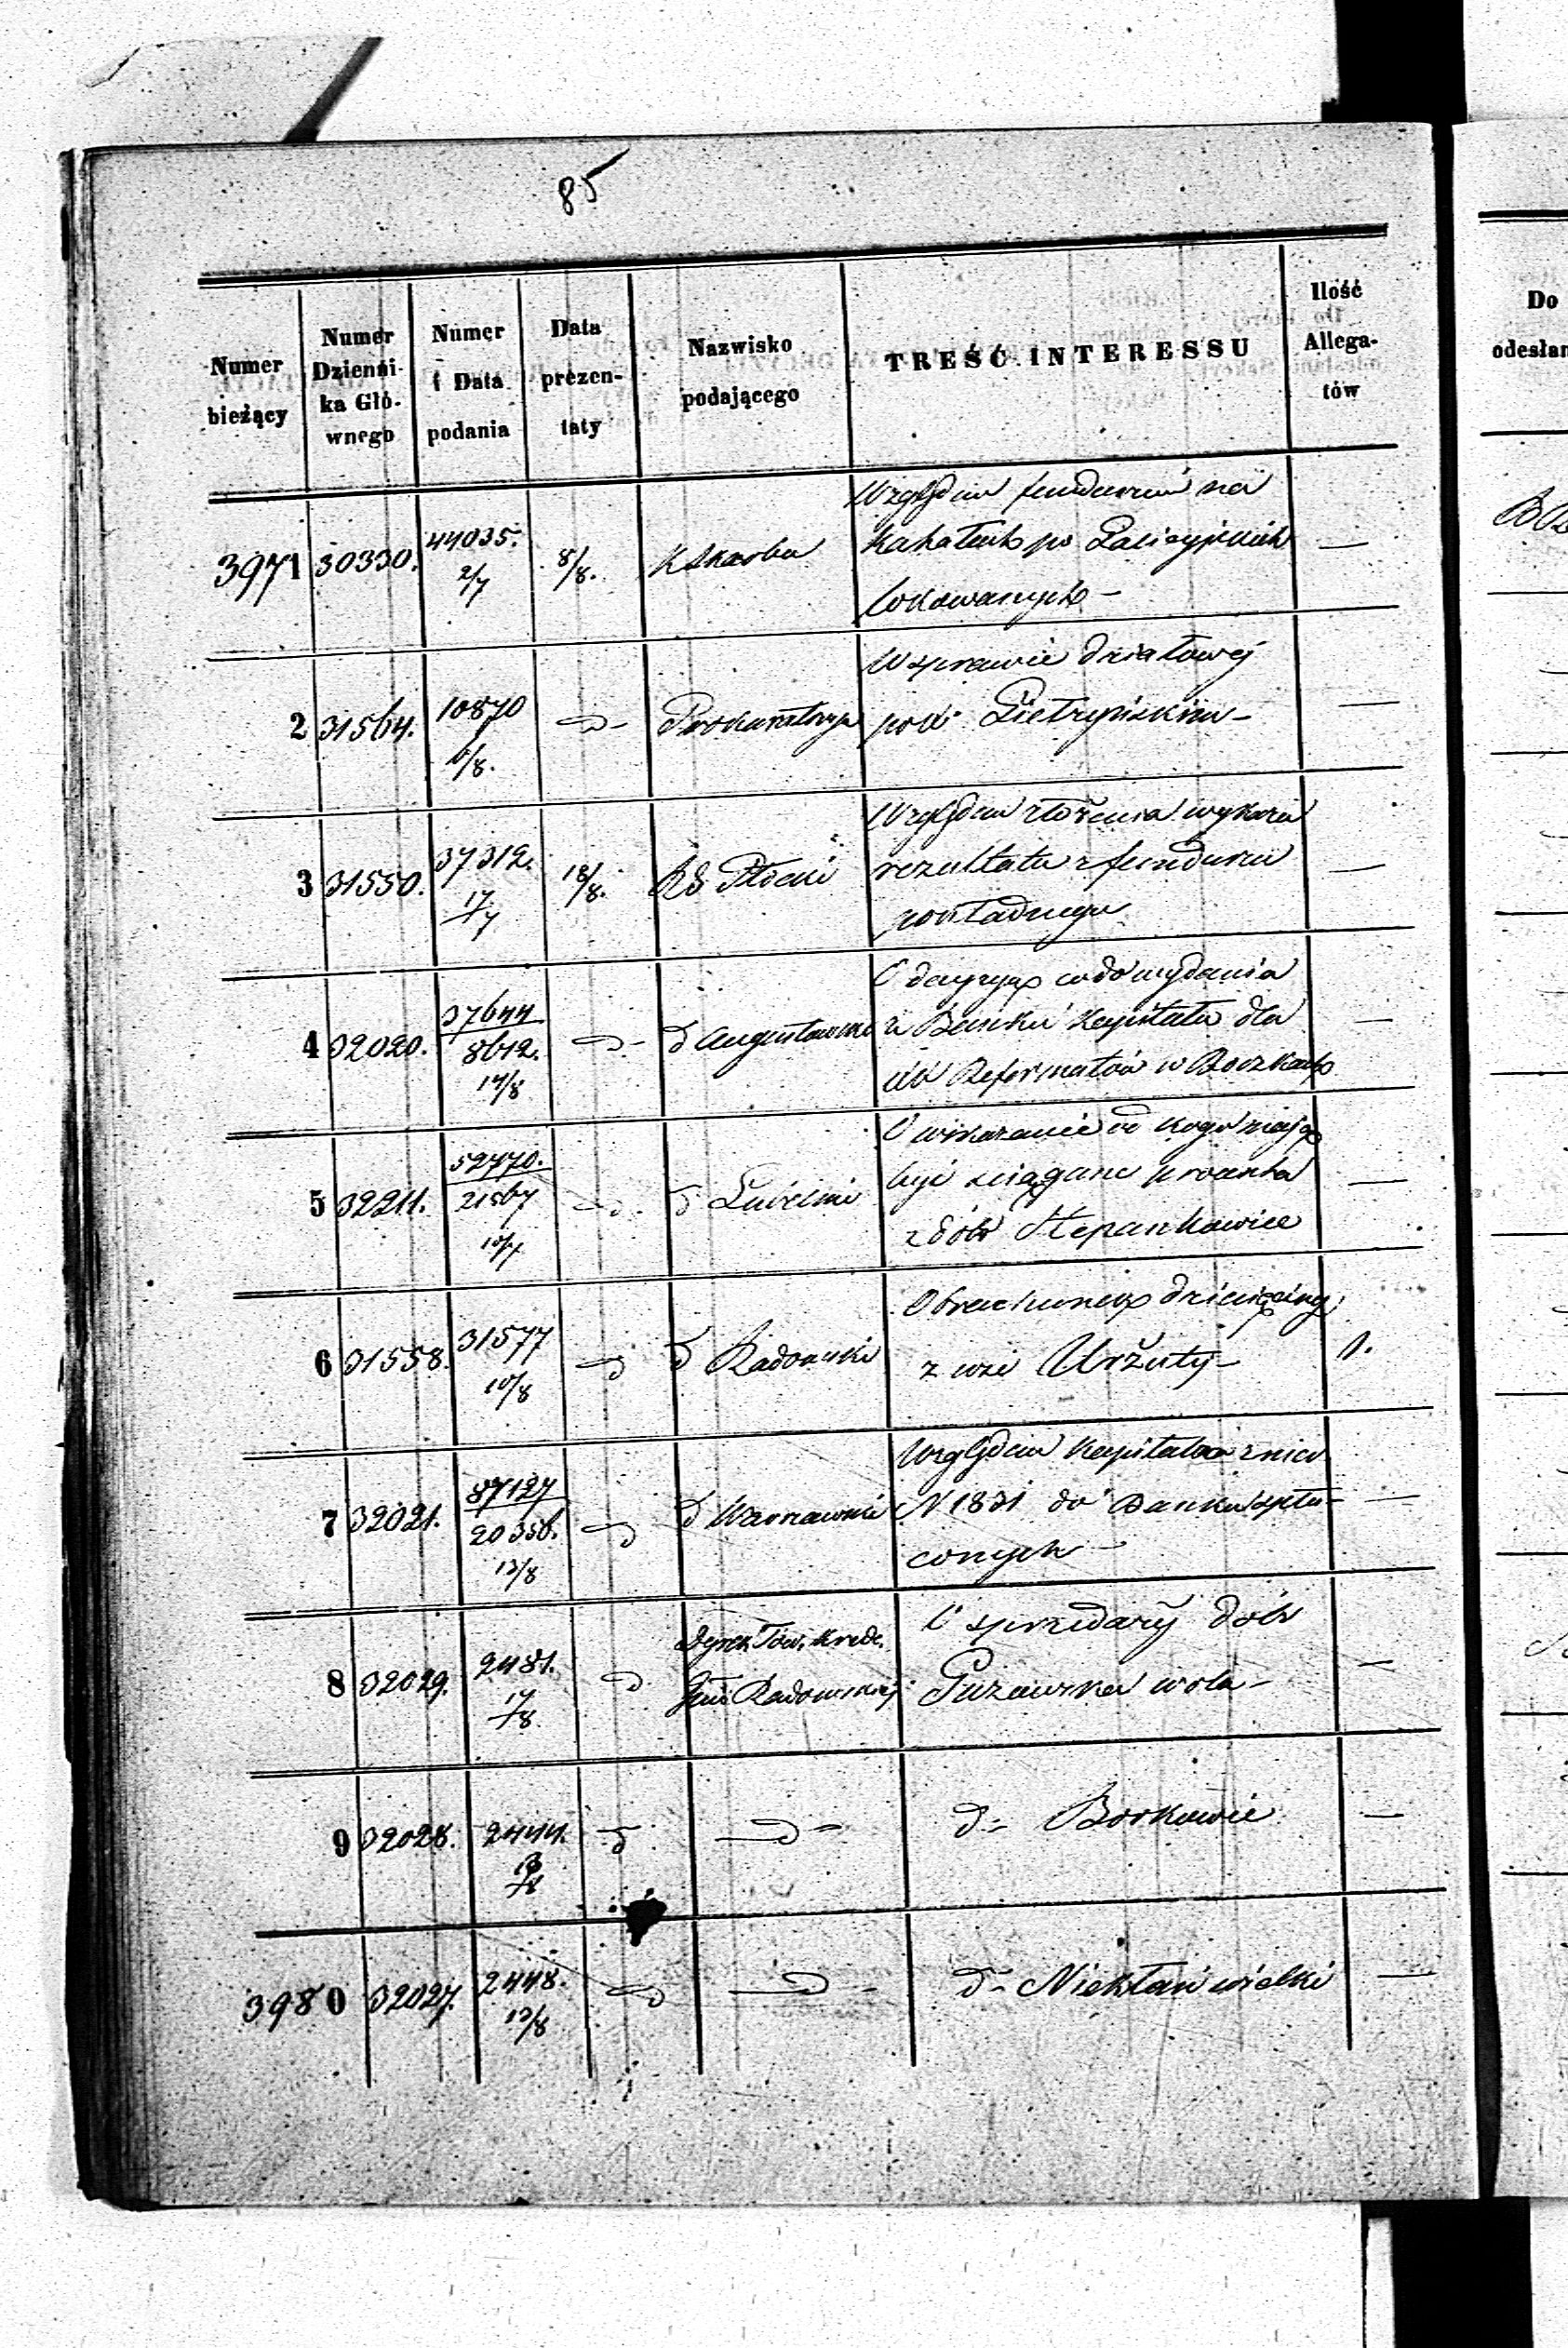 85
Numer bieżący
Numer Dzienni- ka Głó- wnego
Numer i Data podania
Data prezen- taty
Nazwisko podającego
TREŚĆ INTERESSU
Ilość Allega- tów
3971 30330. 44035. 2/7 8/8. K Skarbu
Względem funduszu na
Kahałach po Galicyjskich
lokowanych –
—
2 31564. 10870 6/8. –d– Prokuratorya
W sprawie działowej
pod Pietrzyńskim –
—
3 31550. 37312. 17/7 18/8. RG Płocki
Względem złożenia wykazu
rezultatu z funduszu
pokładnego
—
4 32020. 37644 8612. 14/8 –d– d Augustowski
O decyzyą co do wydania
z Banku Kapitału dla
XX Reformatów w Boczkach
—
5 32211. 52770. 21567 10/7 –d– d Lubelski
O wskazanie od kogo mają
być ściągane procenta
z dóbr Stepankowice
—
6 31558. 31577 10/8 –d d Radomski
Obrachunek dziesięciny
z wsi Urżuty –
1.
7 32021. 87127 20356. 13/8 –d d Warszawski
Względem Kapitałów z nier
N 1831 do Banku spła-
conych –
—
8 32029. 2481. 17/8 d Dyrek. Tow. Kred.
Gub Radomskiej
O sprzedaży dóbr
Guzawska wola –
—
9 32028. 2444. 13/8 d –d– d– Borkowie —
3980 32027. 2448. 13/8 –d –d– d– Niekłań wielki —
Do
odesłan